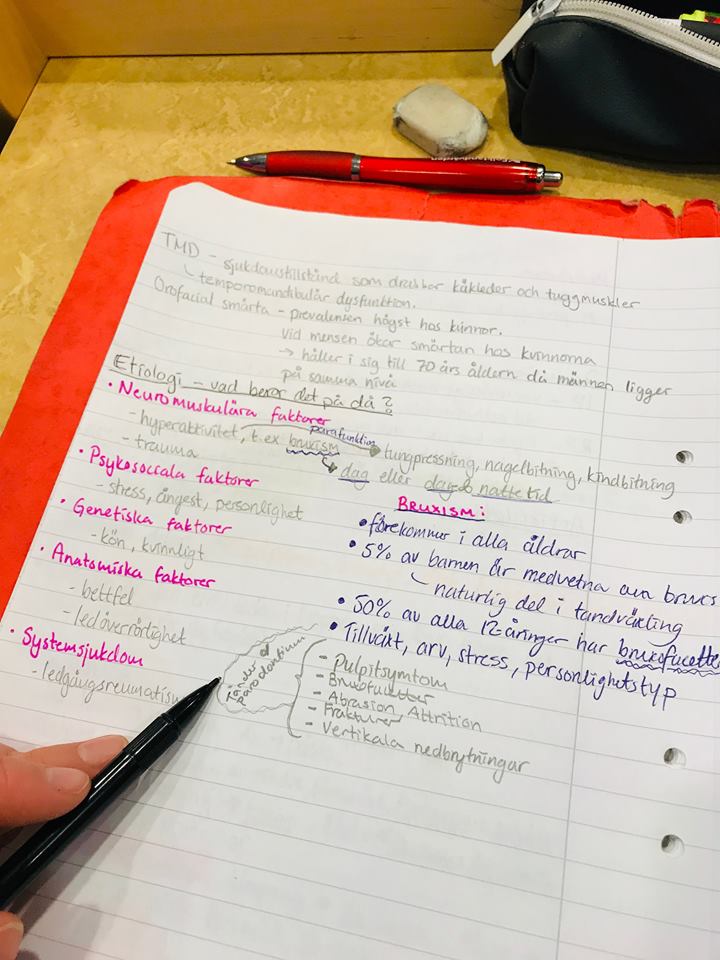 TMD - sjukdomstillstånd som drabbar käkleder och tuggmuskler
temporomandibulär dysfunktion.
Orofacial smärta - prevalensen högst hos kvinnor.
vid mensen ökar smärtan hos kvinnorna
→ håller i sig till 70 års åldern då männen ligger
på samma nivå
Etiologi - vad beror det på då?
• Neuromuskulära faktorer
- hyperaktivitet, t.ex bruxism parafunktion tungpressning, nagelbitning, kindbitning
dag eller dag & nattetid
- trauma
• Psykosociala faktorer
- stress, ångest, personlighet
• Genetiska faktorer
- kön, kvinnligt
• Anatomiska faktorer
- bettfel
- ledöverrörlighet
• Systemsjukdom
- ledgångsreumatism
Bruxism:
• förekommer i alla åldrar
• 5% av barnen är medvetna om
naturlig del i tandväxling
• 50% av alla 12-åringar har brukofacetter
• Tillväxt, arv, stress, personlighetstyp
Tänder &
Parodontium
- Pulpitsymtom
- Bruxofacetter
- Abrasion Attrition
- Frakturer
- Vertikala nedbrytningar